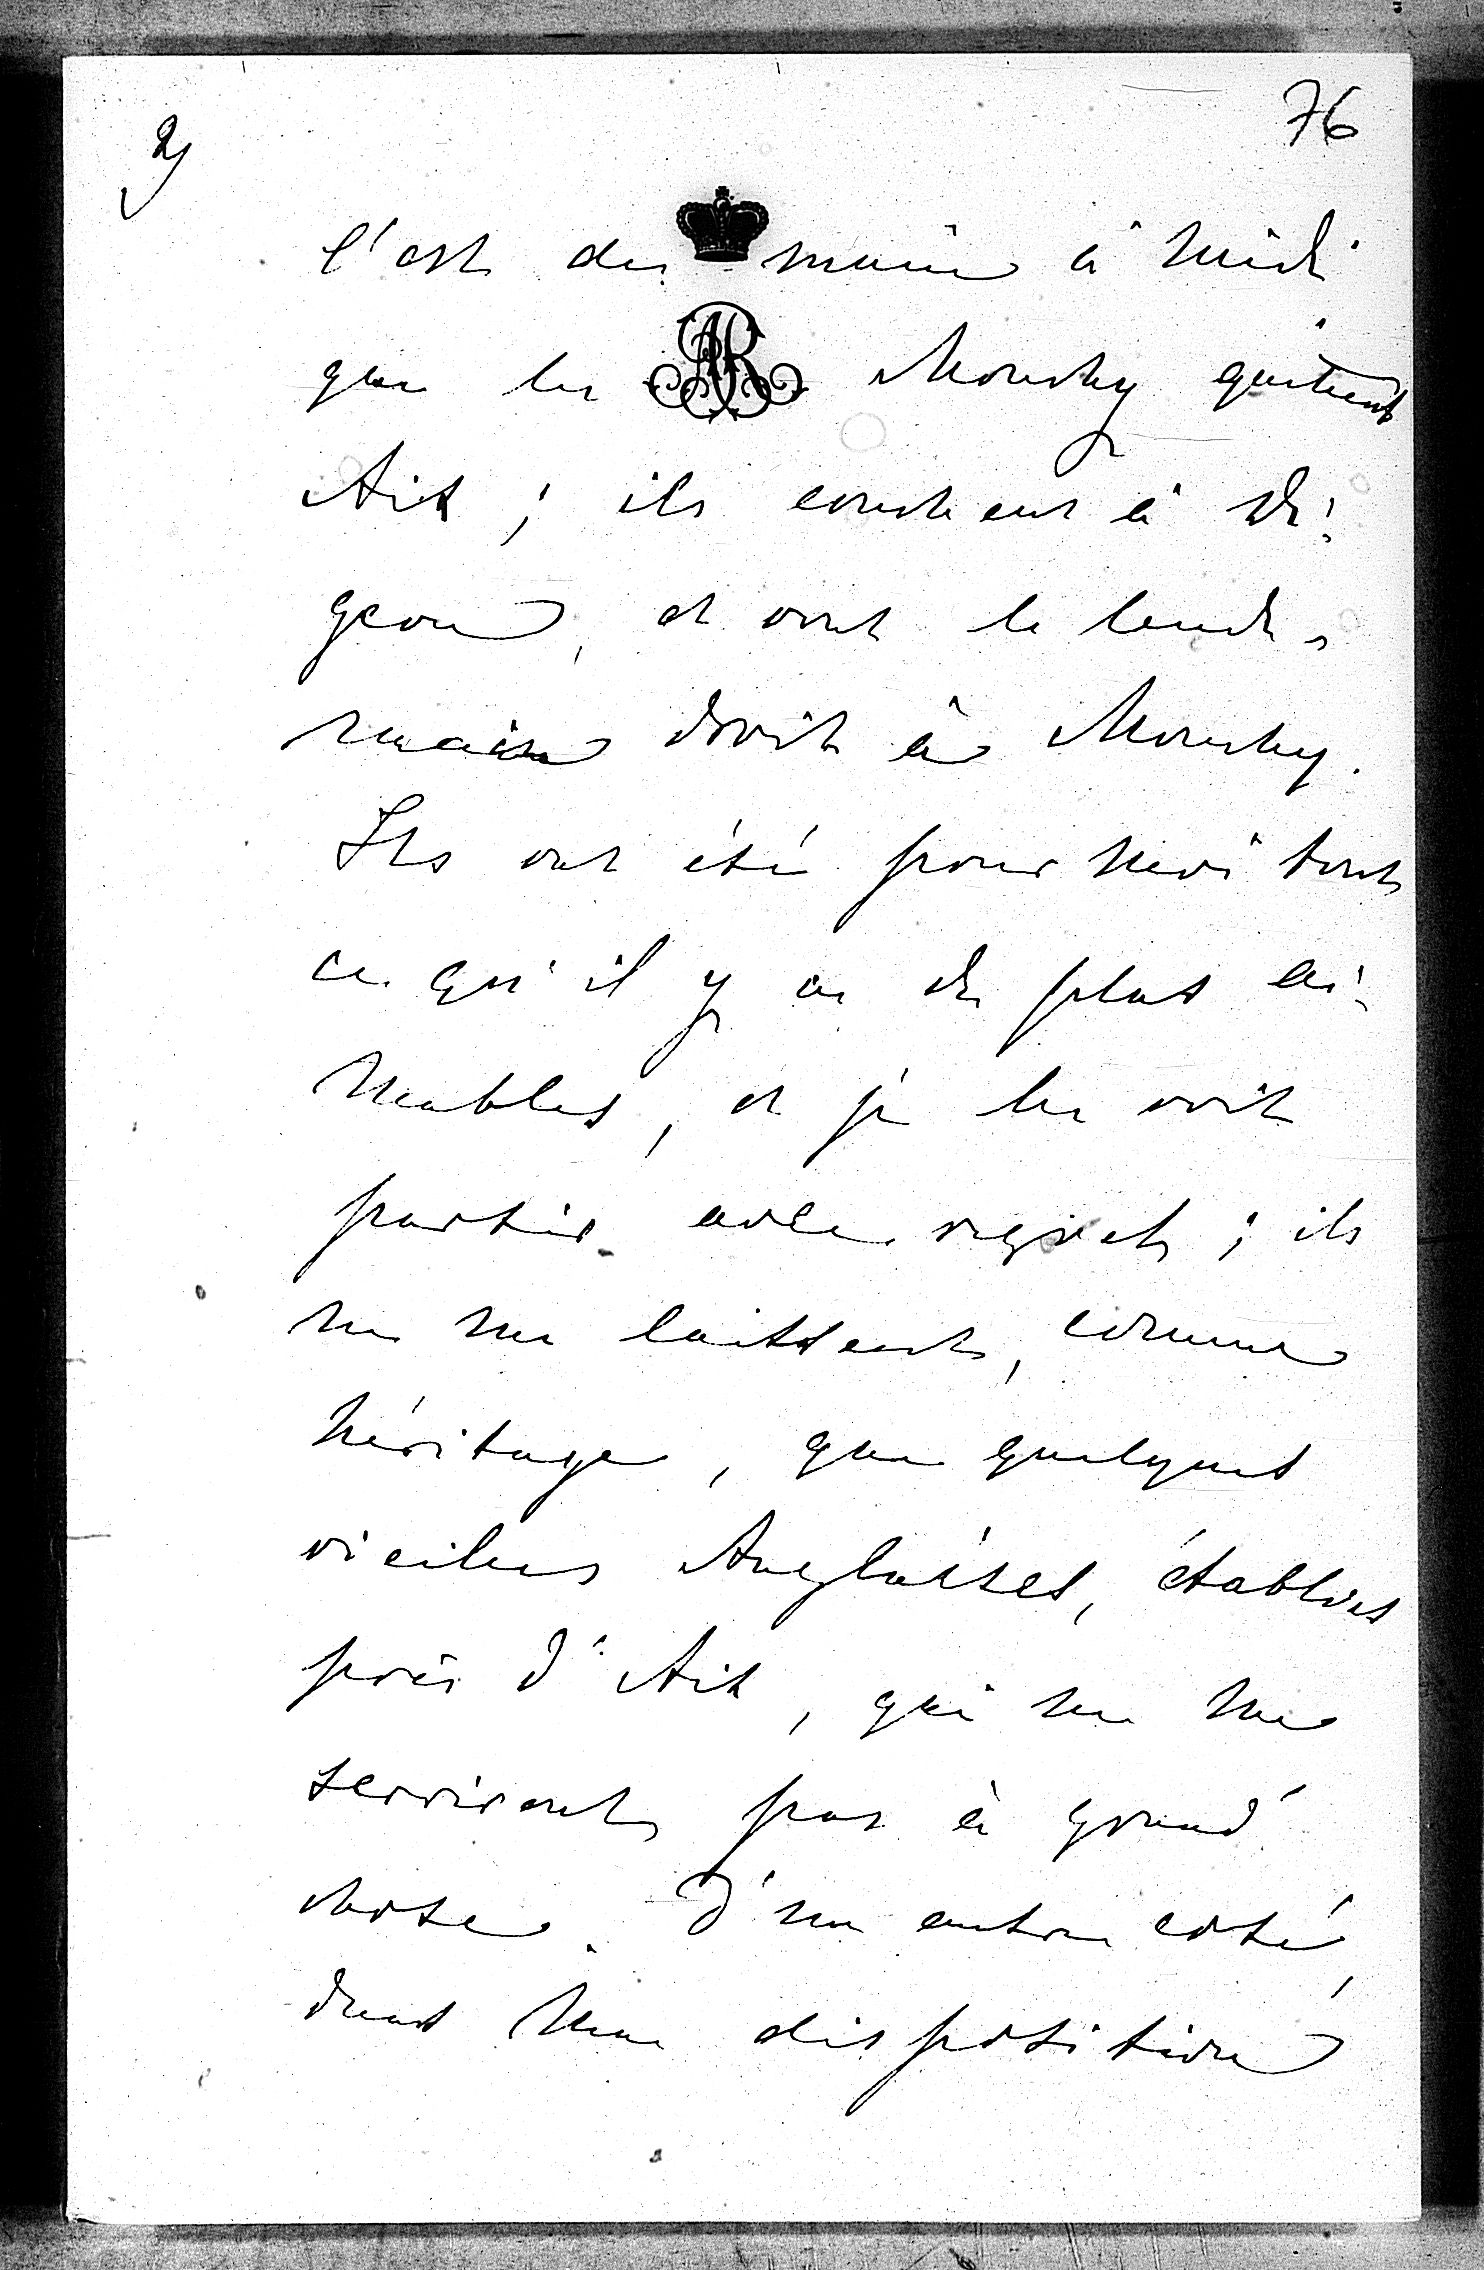 2)
76
C'est demain à midi
que les Mouchy quittent
Aix ; ils couchent à Di-
geon, et vont le lende-
main droit à Mouchy.
Ils ont été pour moi tout
ce qu'il y a de plus ai-
mables, et je les vois
partir avec regret ; ils
ne me laissent, comme
héritage, que quelques
vieilles Anglaises, établies
près d'Aix, qui ne me
serviront pas à grand'
chose. D'un autre coté,
dans une disposition